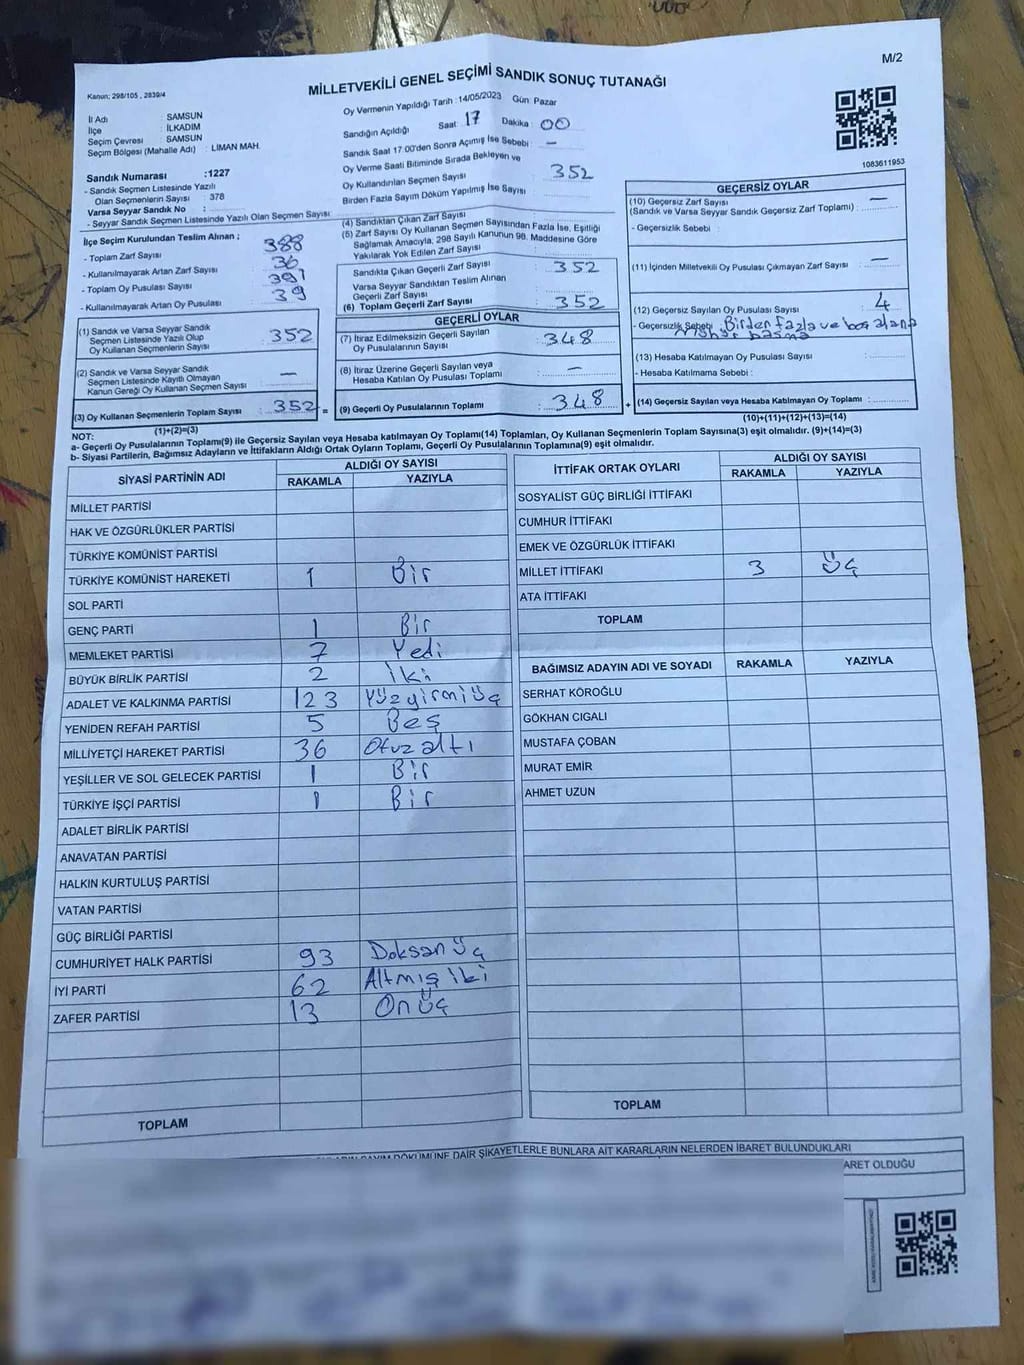 M/2
MİLLETVEKİLİ GENEL SEÇİMİ SANDIK SONUÇ TUTANAĞI
Kanun; 298/105 , 2839/4
İl Adı : SAMSUN
İlçe : İLKADIM
Seçim Çevresi : SAMSUN
Seçim Bölgesi (Mahalle Adı) : LİMAN MAH.
Sandık Numarası :1227
- Sandık Seçmen Listesinde Yazılı
Olan Seçmenlerin Sayısı : 378
Varsa Seyyar Sandık No :
- Seyyar Sandık Seçmen Listesinde Yazılı Olan Seçmen Sayısı:
Oy Vermenin Yapıldığı Tarih :14/05/2023 Gün Pazar
Sandığın Açıldığı Saat: 17 Dakika: 00
Sandık Saat 17:00'den Sonra Açımış İse Sebebi : -
Oy Verme Saati Bitiminde Sırada Bekleyen ve
Oy Kullandırılan Seçmen Sayısı : 352
Birden Fazla Sayım Döküm Yapılmış İse Sayısı :
1083611953
İlçe Seçim Kurulundan Teslim Alınan ;
- Toplam Zarf Sayısı : 388
- Kullanılmayarak Artan Zarf Sayısı : 36
- Toplam Oy Pusulası Sayısı : 391
- Kullanılmayarak Artan Oy Pusulası : 39
(1) Sandık ve Varsa Seyyar Sandık
Seçmen Listesinde Yazılı Olup
Oy Kullanan Seçmenlerin Sayısı : 352
(2) Sandık ve Varsa Seyyar Sandık
Seçmen Listesinde Kayıtlı Olmayan
Kanun Gereği Oy Kullanan Seçmen Sayısı : —
(3) Oy Kullanan Seçmenlerin Toplam Sayısı : 352 =
(1)+(2)=(3)
(4) Sandıktan Çıkan Zarf Sayısı :
(5) Zarf Sayısı Oy Kullanan Seçmen Sayısından Fazla İse, Eşitliği
Sağlamak Amacıyla, 298 Sayılı Kanunun 98. Maddesine Göre
Yakılarak Yok Edilen Zarf Sayısı :
Sandıkta Çıkan Geçerli Zarf Sayısı : 352
Varsa Seyyar Sandıktan Teslim Alınan
Geçerli Zarf Sayısı :
(6) Toplam Geçerli Zarf Sayısı : 352
GEÇERLİ OYLAR
(7) İtiraz Edilmeksizin Geçerli Sayılan
Oy Pusulalarının Sayısı : 348
(8) İtiraz Üzerine Geçerli Sayılan veya
Hesaba Katılan Oy Pusulası Toplamı : —
(9) Geçerli Oy Pusulalarının Toplamı : 348 +
GEÇERSİZ OYLAR
(10) Geçersiz Zarf Sayısı
(Sandık ve Varsa Seyyar Sandık Geçersiz Zarf Toplamı) : —
- Geçersizlik Sebebi :
(11) İçinden Milletvekili Oy Pusulası Çıkmayan Zarf Sayısı : —
(12) Geçersiz Sayılan Oy Pusulası Sayısı : 4
- Geçersizlik Sebebi : Birden fazla ve boş alana
mühür basma
(13) Hesaba Katılmayan Oy Pusulası Sayısı :
- Hesaba Katılmama Sebebi :
(14) Geçersiz Sayılan veya Hesaba Katılmayan Oy Toplamı :
(10)+(11)+(12)+(13)=(14)
NOT:
a- Geçerli Oy Pusulalarının Toplamı(9) ile Geçersiz Sayılan veya Hesaba katılmayan Oy Toplamı(14) Toplamları, Oy Kullanan Seçmenlerin Toplam Sayısına(3) eşit olmalıdır. (9)+(14)=(3)
b- Siyasi Partilerin, Bağımsız Adayların ve İttifakların Aldığı Ortak Oyların Toplamı, Geçerli Oy Pusulalarının Toplamına(9) eşit olmalıdır.
SİYASİ PARTİNİN ADI ALDIĞI OY SAYISI
RAKAMLA YAZIYLA
MİLLET PARTİSİ
HAK VE ÖZGÜRLÜKLER PARTİSİ
TÜRKİYE KOMÜNİST PARTİSİ
TÜRKİYE KOMÜNİST HAREKETİ 1 Bir
SOL PARTİ
GENÇ PARTİ 1 Bir
MEMLEKET PARTİSİ 7 Yedi
BÜYÜK BİRLİK PARTİSİ 2 İki
ADALET VE KALKINMA PARTİSİ 123 Yüzyirmiüç
YENİDEN REFAH PARTİSİ 5 Beş
MİLLİYETÇİ HAREKET PARTİSİ 36 Otuz altı
YEŞİLLER VE SOL GELECEK PARTİSİ 1 Bir
TÜRKİYE İŞÇİ PARTİSİ 1 Bir
ADALET BİRLİK PARTİSİ
ANAVATAN PARTİSİ
HALKIN KURTULUŞ PARTİSİ
VATAN PARTİSİ
GÜÇ BİRLİĞİ PARTİSİ
CUMHURİYET HALK PARTİSİ 93 Doksan üç
İYİ PARTİ 62 Altmış iki
ZAFER PARTİSİ 13 On üç
TOPLAM
İTTİFAK ORTAK OYLARI ALDIĞI OY SAYISI
RAKAMLA YAZIYLA
SOSYALİST GÜÇ BİRLİĞİ İTTİFAKI
CUMHUR İTTİFAKI
EMEK VE ÖZGÜRLÜK İTTİFAKI
MİLLET İTTİFAKI 3 Üç
ATA İTTİFAKI
TOPLAM
BAĞIMSIZ ADAYIN ADI VE SOYADI RAKAMLA YAZIYLA
SERHAT KÖROĞLU
GÖKHAN CIGALI
MUSTAFA ÇOBAN
MURAT EMİR
AHMET UZUN
TOPLAM
DÖKÜMÜNE DAİR ŞİKAYETLERLE BUNLARA AİT KARARLARIN NELERDEN İBARET BULUNDUKLARI
OLDUĞU